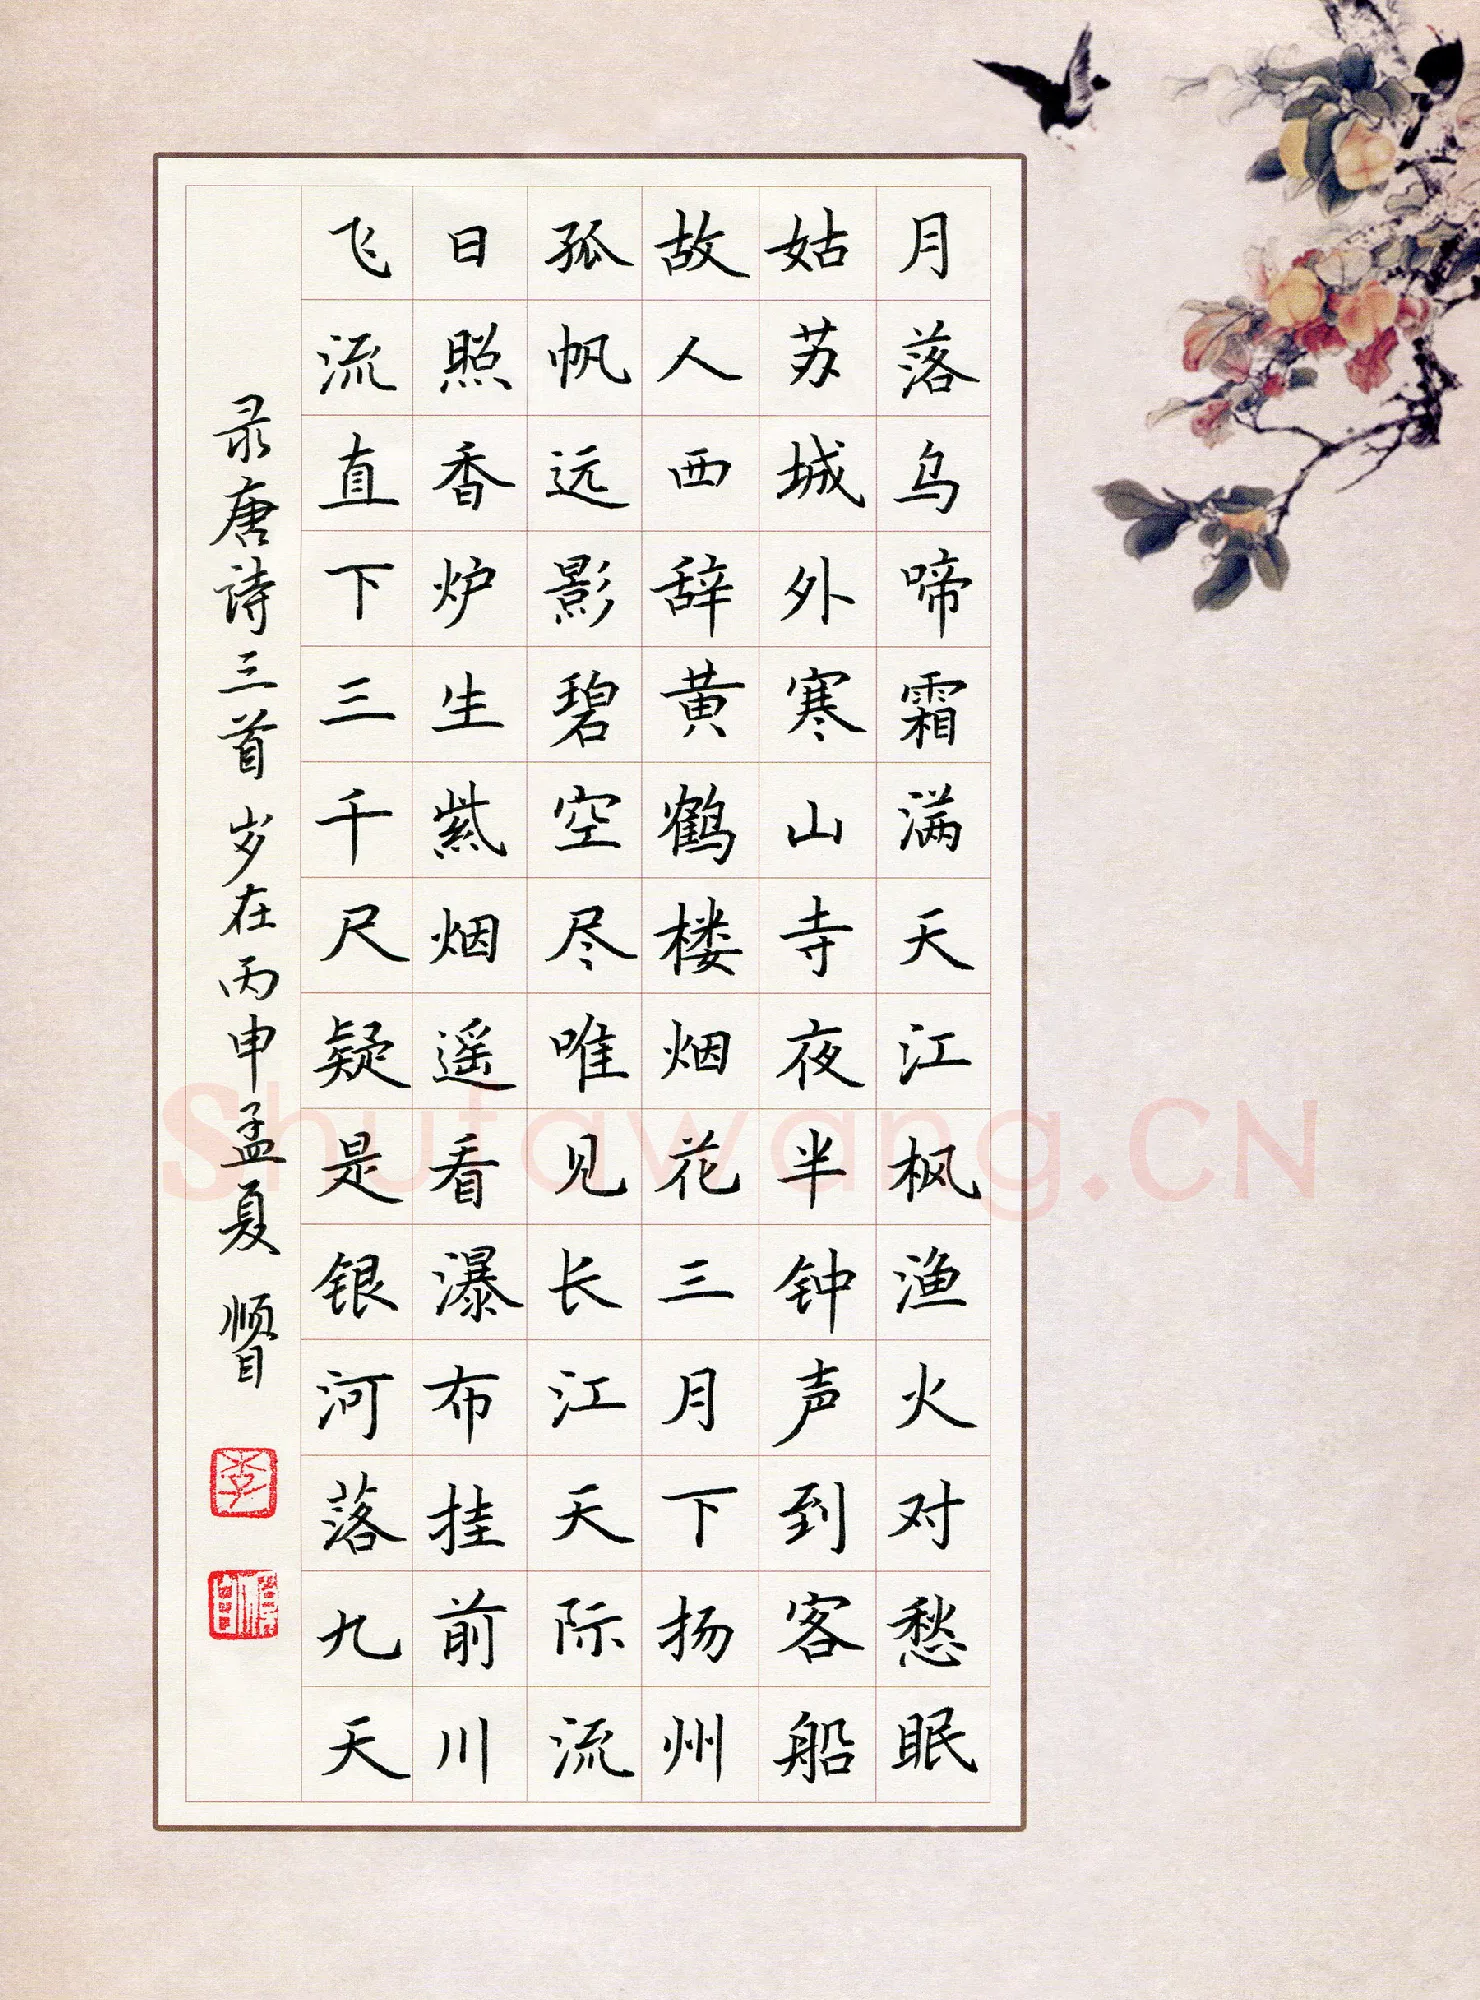 月落乌啼霜满天江枫渔火对愁眠
姑苏城外寒山寺夜半钟声到客船
故人西辞黄鹤楼烟花三月下扬州
孤帆远影碧空尽唯见长江天际流
日照香炉生紫烟遥看瀑布挂前川
飞流直下三千尺疑是银河落九天
录唐诗三首 岁在丙申孟夏 顺昌
李
Shufawang.CN